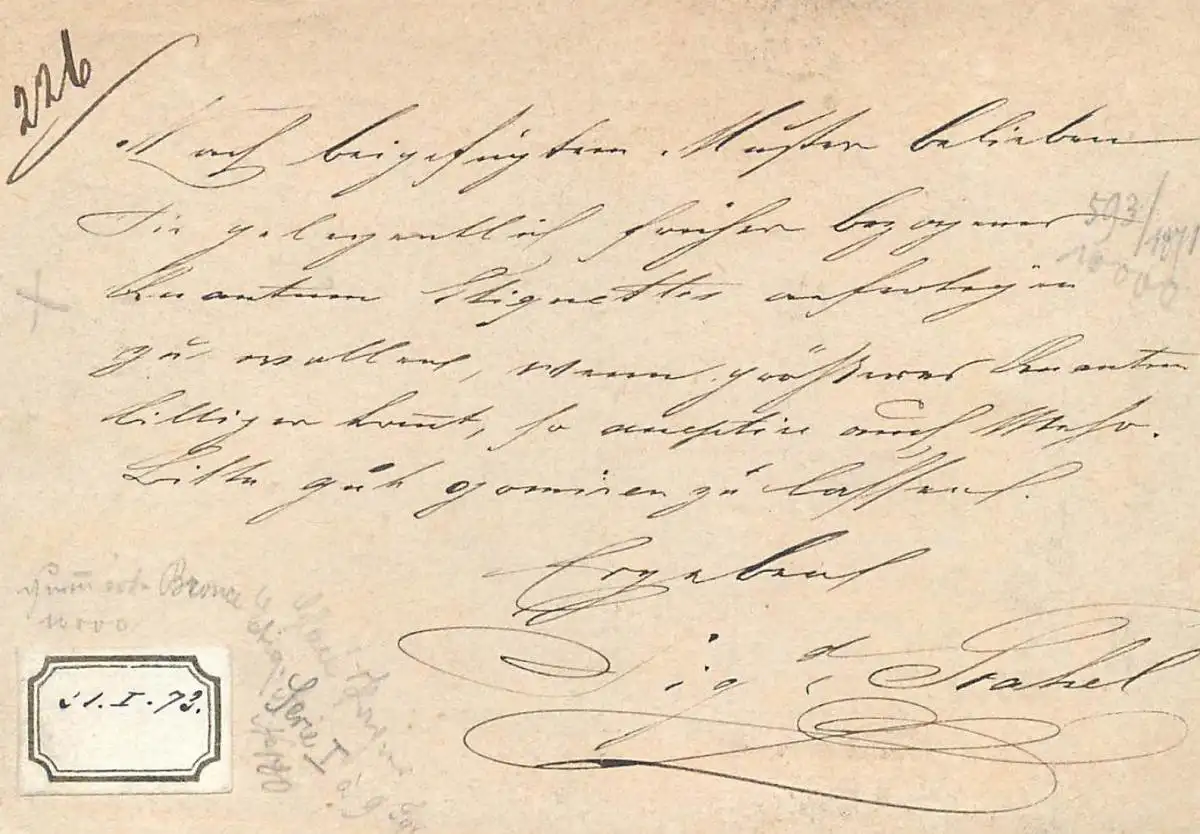 226
Nach beigefügtem Muster belieben
Sie gelegentlich früher bezogenes
Quantum Etiquettes anfertigen
zu wollen, wenn größeres Quantum
billiger kom̅t, so acceptire auch Mehr.
Bitte gut gomiren zu lassen.
Ergebenst
Sigd. Stahel
593/1871
10000
Bronce
10000
Etiq.
Serie I
21. I. 73.